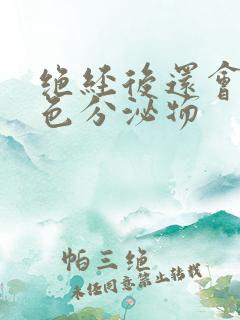 絕經後還會
色分泌物
帕三绝
未经同意禁止转载